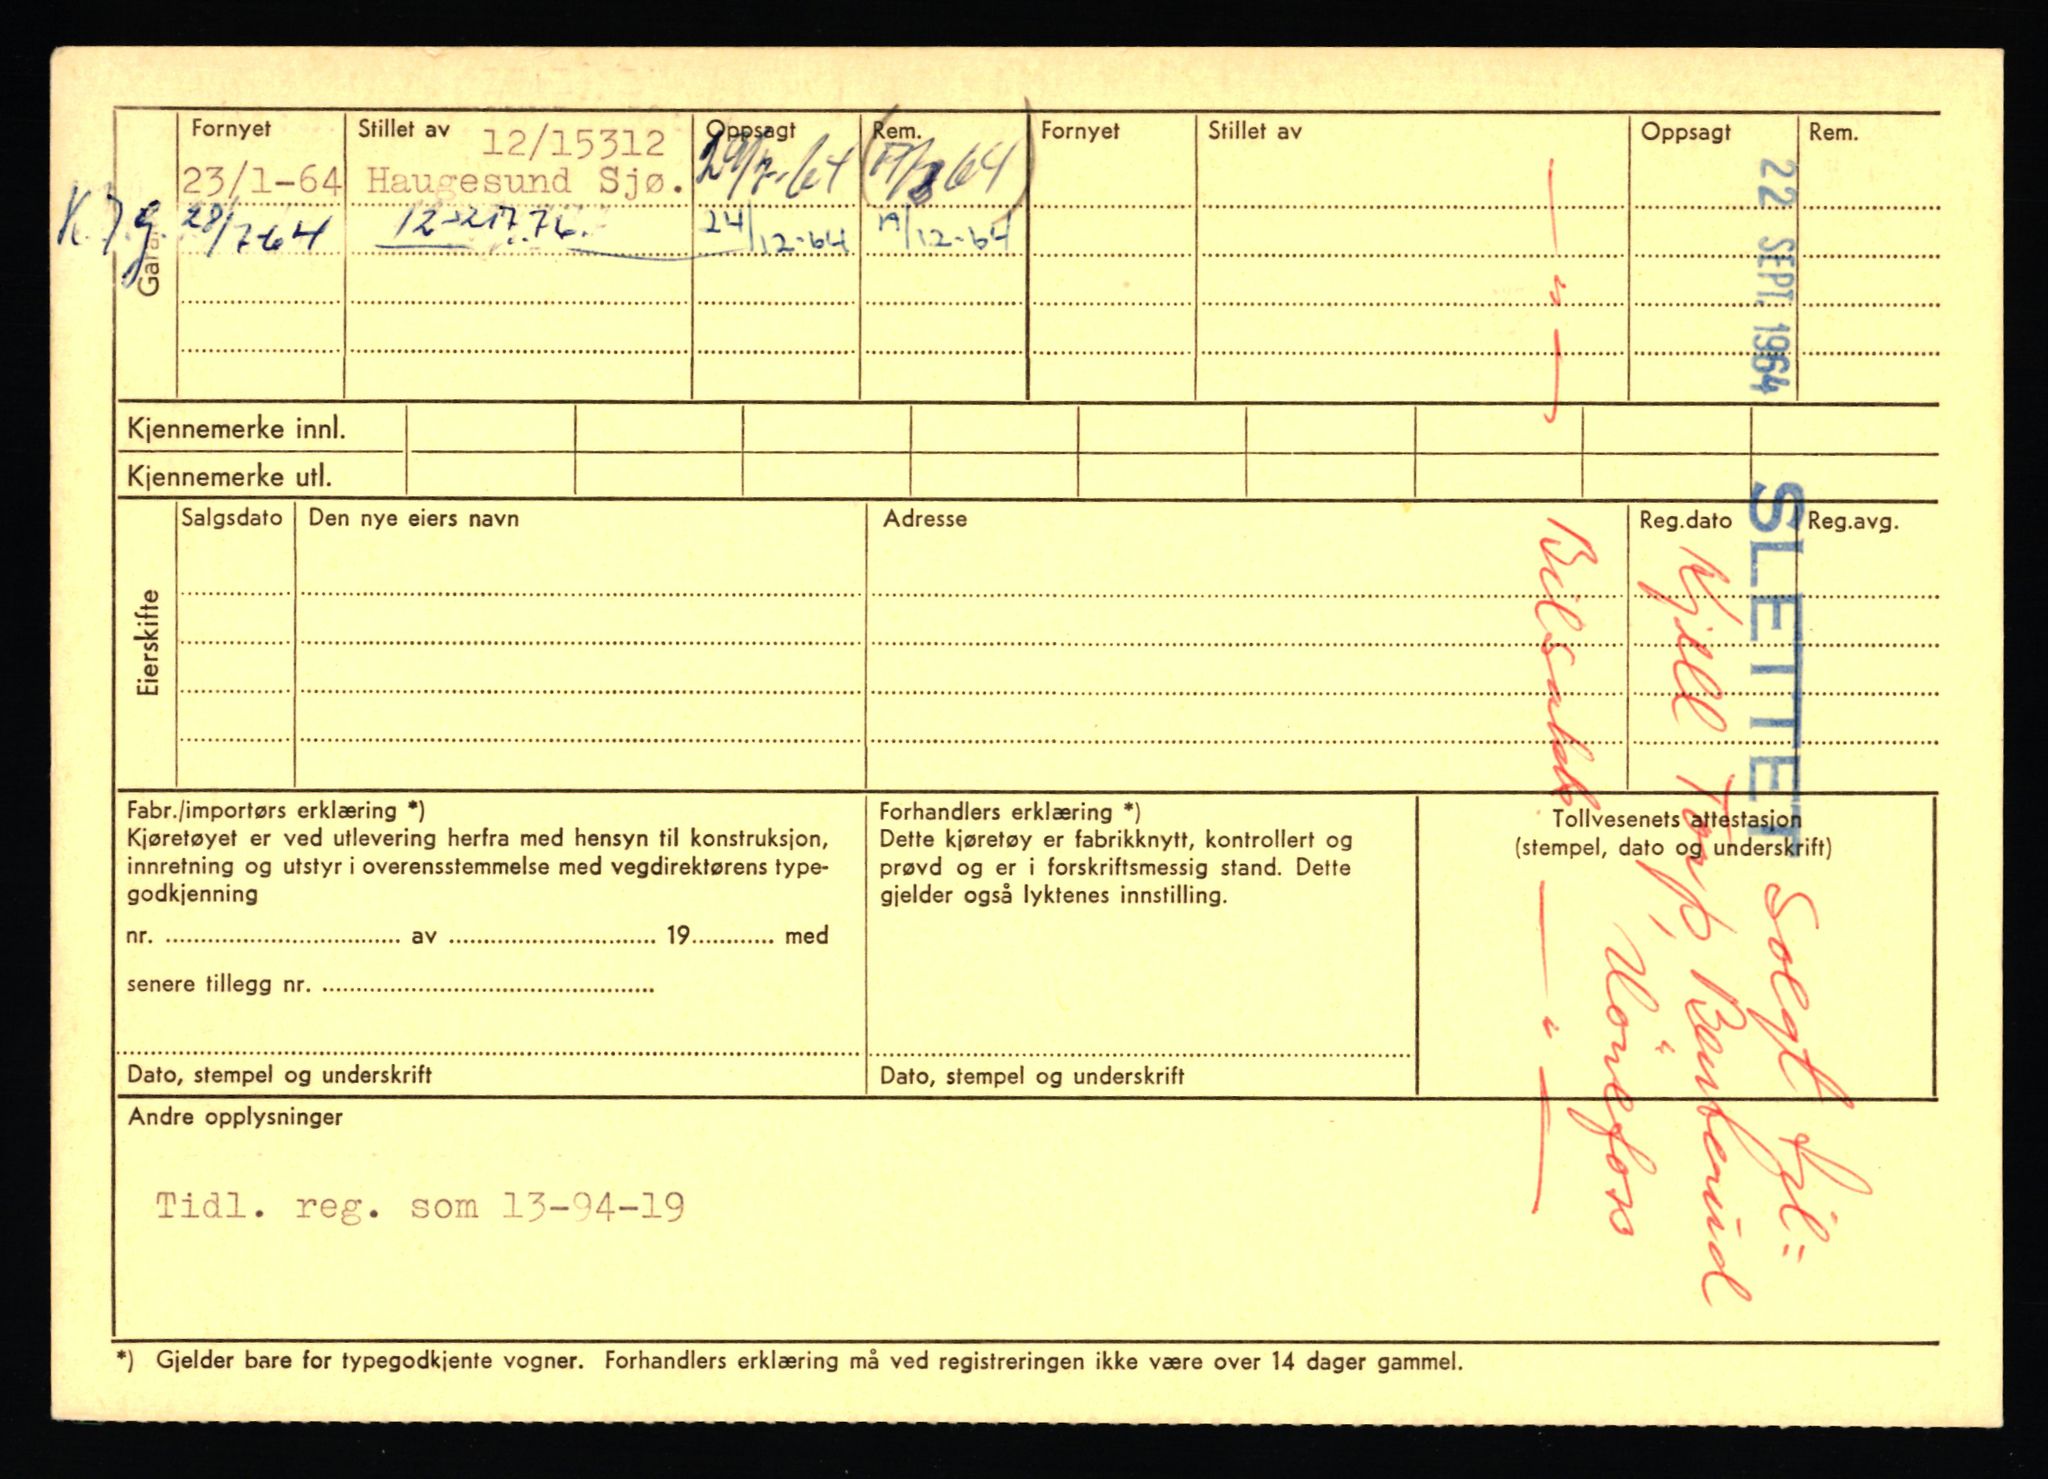 Fornyet Stillet av 12/15312 Oppsagt Rem. Fornyet Stillet av Oppsagt Rem.
23/1-64 Haugesund Sjø.
K.J.g. 28/7-64 24/12-64 /12-64
Kjennemerke innl.
Kjennemerke utl.
Eierskifte
Salgsdato Den nye eiers navn Adresse Reg.dato Reg.avg.
Fabr./importørs erklæring *)
Kjøretøyet er ved utlevering herfra med hensyn til konstruksjon,
innretning og utstyr i overensstemmelse med vegdirektørens type-
godkjenning
nr. av 19 med
senere tillegg nr.
Dato, stempel og underskrift
Forhandlers erklæring *)
Dette kjøretøy er fabrikknytt, kontrollert og
prøvd og er i forskriftsmessig stand. Dette
gjelder også lyktenes innstilling.
Dato, stempel og underskrift
Tollvesenets attestasjon
(stempel, dato og underskrift)
22 SEPT. 1964
SLETTET
Solgt til:
Kjell Torp, Benterud
Hönefoss
— " —
Bilsakkb
— " —
Andre opplysninger
Tidl. reg. som 13-94-19
*) Gjelder bare for typegodkjente vogner. Forhandlers erklæring må ved registreringen ikke være over 14 dager gammel.